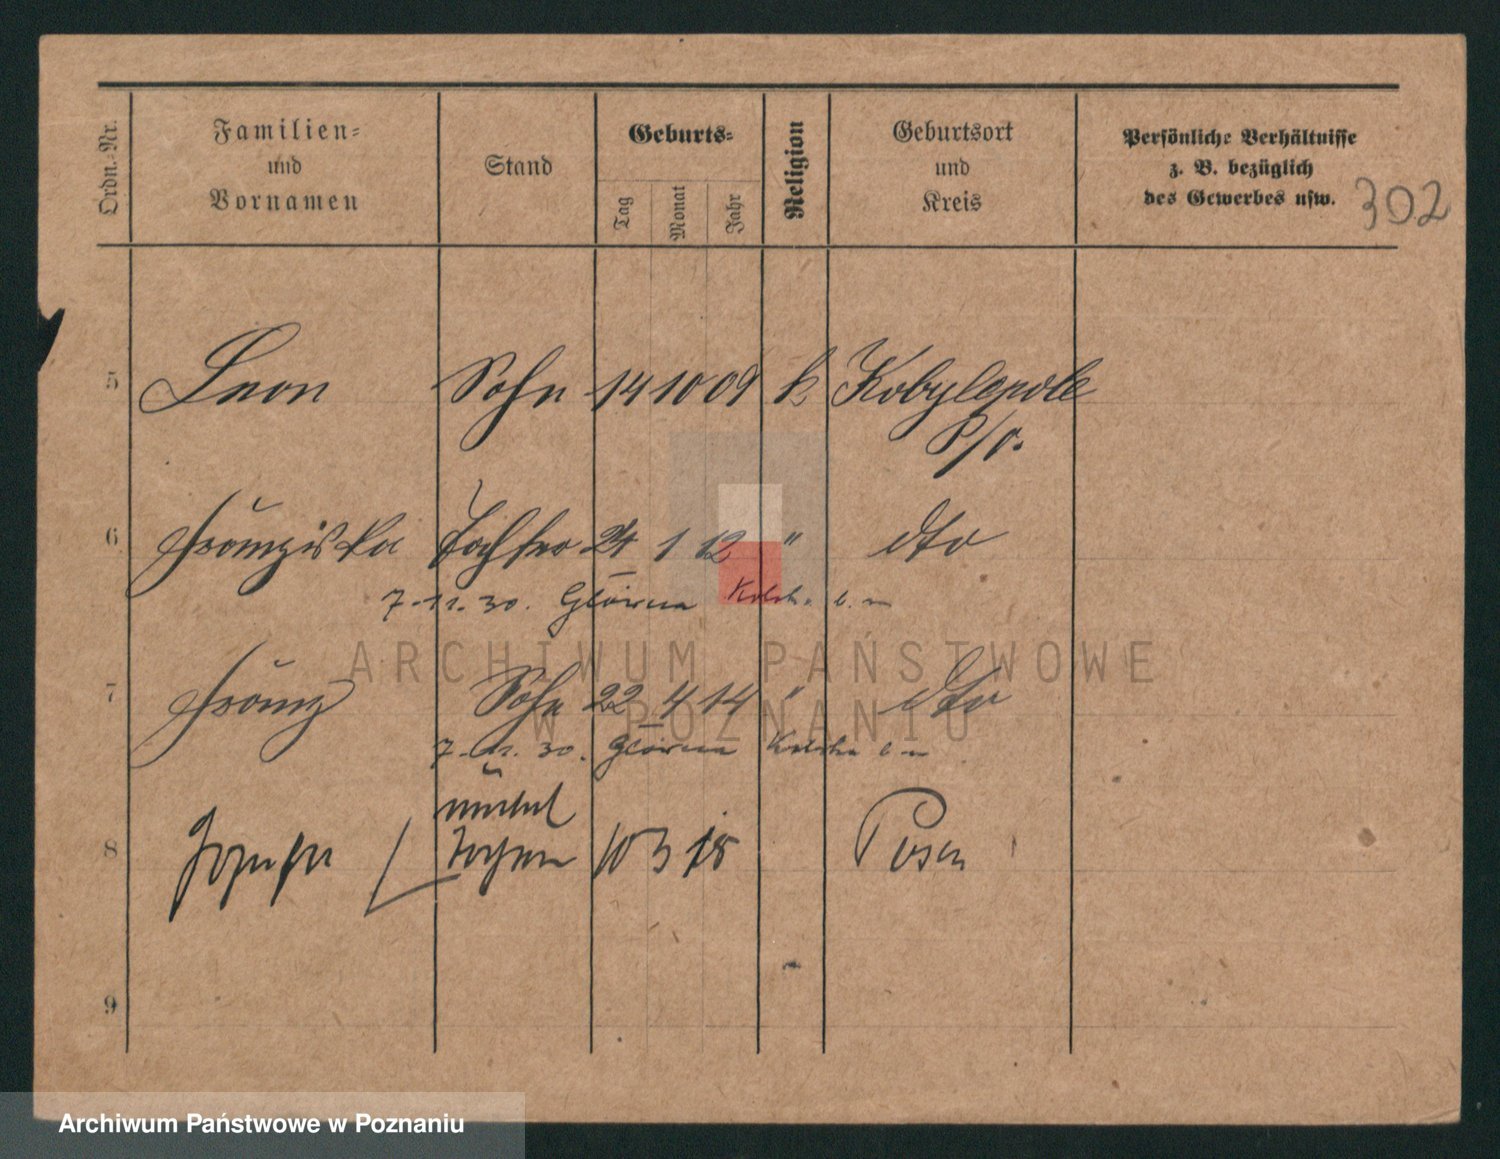 Ordn.-Nr.
Familien-
und
Vornamen
Stand
Geburts-
Tag
Monat
Jahr
Religion
Geburtsort
und
Kreis
Persönliche Verhältnisse
z. B. bezüglich
des Gewerbes usw.
302
5 Leon Sohn 14 10 09 k Kobylepole
P/O.
6 Franziska Tochter 24 1 12 " dto
7-11.30. Główna
7 Franz Sohn 22 4 14 " dto
7-11.30. Główna
8 Josefa 10 3 18 Posen
9
ARCHIWUM PAŃSTWOWE
W POZNANIU
Archiwum Państwowe w Poznaniu